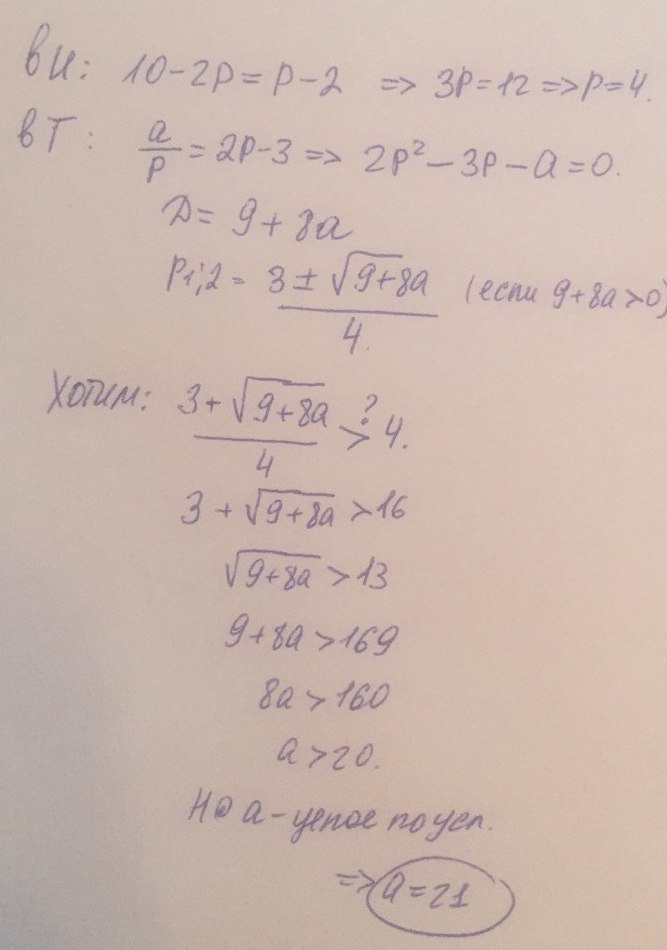 в И: 10-2p=p-2 => 3p=12 => p=4.
в Т: a/p = 2p-3 => 2p²-3p-a=0.
D= 9+8a
p1;2 = (3 ± √(9+8a))/4. (если 9+8a>0)
Хотим: (3+√(9+8a))/4 >? 4.
3+√(9+8a) >16
√(9+8a) >13
9+8a>169
8a>160
a>20.
Но a-целое по усл.
=> a=21